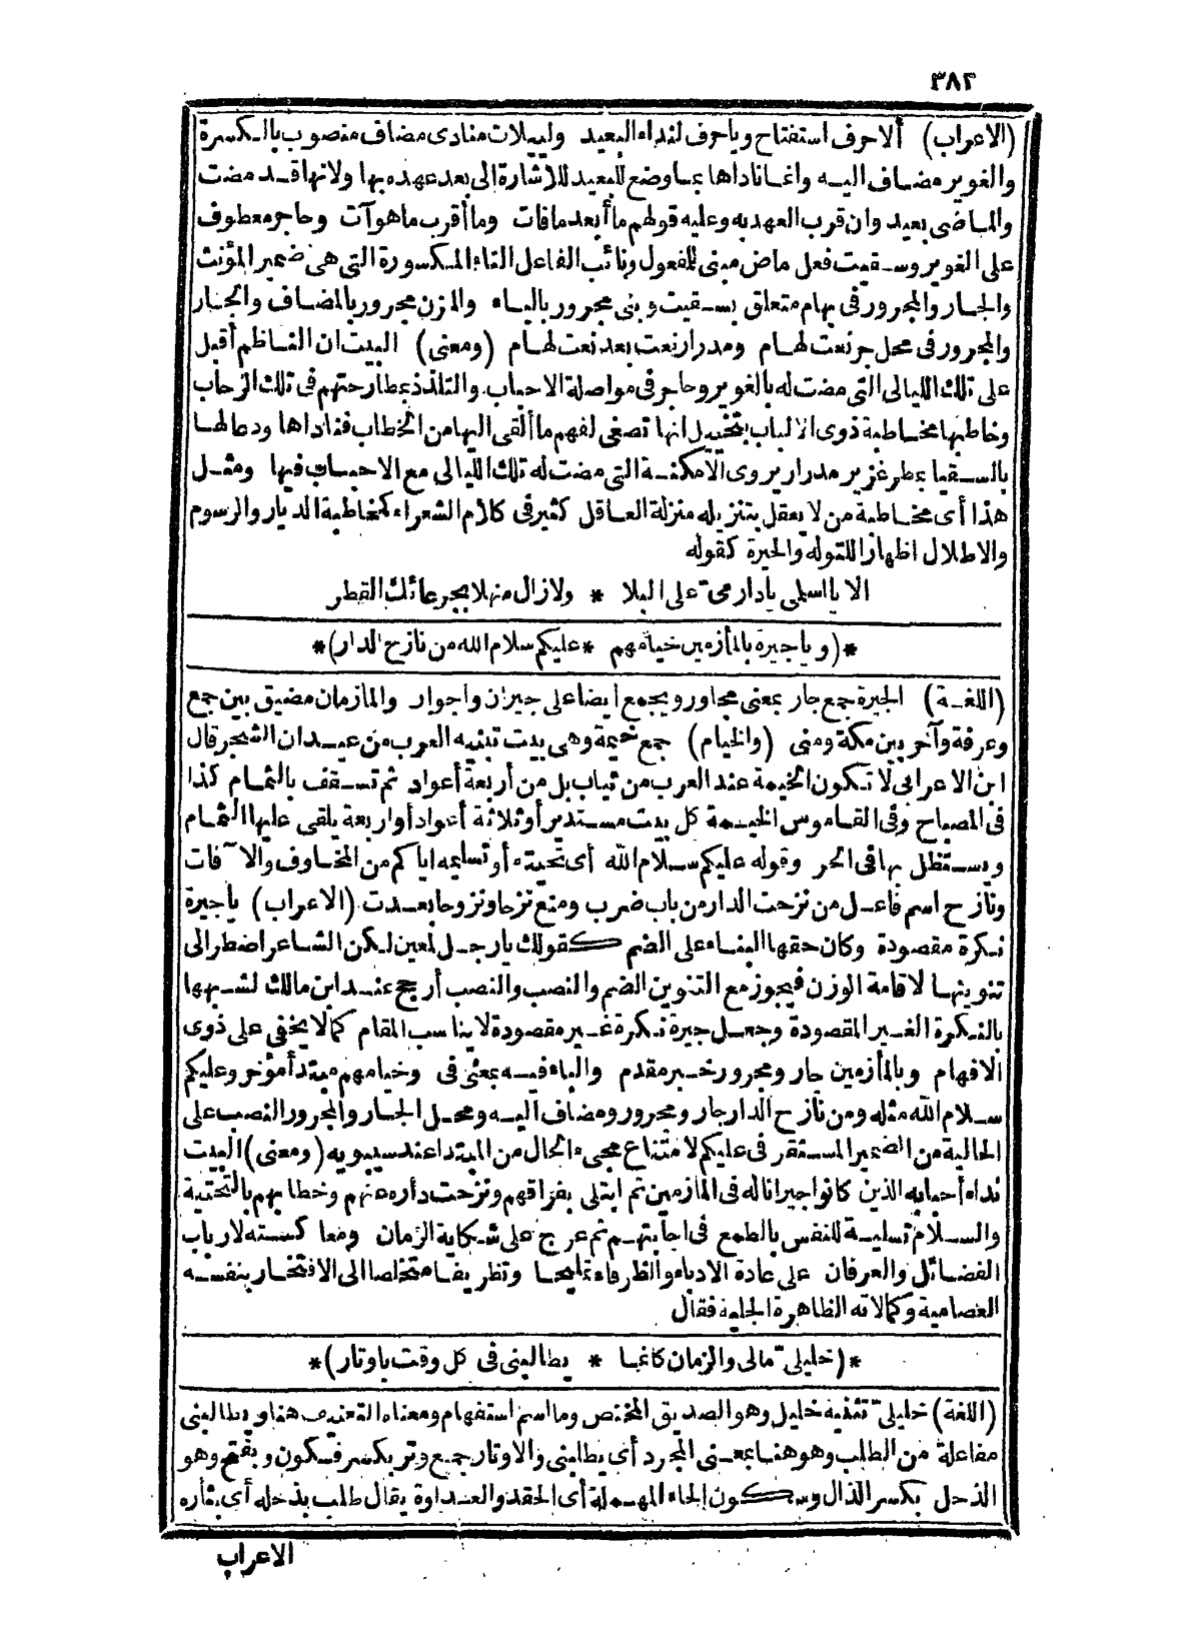 ٣٨٢
(الاعراب) ألا حرف استفتاح ويا حرف لنداء البعيد وليلات منادى مضاف منصوب بالكسرة
والغوير مضاف اليه وانما ناداها بما وضع للبعيد للاشارة الى بعد عهده بها ولانها قد مضت
والماضى بعيد وان قرب العهد به وعليه قولهم ما أبعد مافات وما أقرب ما هو آت وحاجر معطوف
على الغوير وسقيت فعل ماض مبنى للمفعول ونائب الفاعل التاء المكسورة التى هى ضمير المؤنث
والجار والمجرور فى بهام متعلق بسقيت وبنى مجرور بالياء والمزن مجرور بالمضاف والجار
والمجرور فى محل جر نعت لهام ومدرار نعت بعد نعت لهام (ومعنى) البيت ان الناظم أقبل
على تلك الليالى التى مضت له بالغوير وحاجر فى مواصلة الاحباب والتلذذ بمطارحتهم فى تلك الرحاب
وخاطبها مخاطبة ذوى الالباب بتخييل انها تصغى لفهم ما ألقى اليها من الخطاب فناداها ودعا لها
بالسقيا بمطر غزير مدرار يروى الامكنة التى مضت له تلك الليالى مع الاحباب فيها ومثل
هذا أى مخاطبة من لا يعقل بتنزيله منزلة العاقل كثير فى كلام الشعراء كمخاطبة الديار والرسوم
والاطلال اظهارا للتوله والحيرة كقوله
الا يا اسلمى يا دارمى على البلا * ولا زال منهلا بجرعائك القطر
*(ويا جيرة بالمأزمين خيامهم * عليكم سلام الله من نازح الدار)*
(اللغة) الجيرة جمع جار بمعنى مجاور ويجمع أيضا على جيران واجوار والمازمان مضيق بين جمع
وعرفة وآخر بين مكة ومنى (والخيام) جمع خيمة وهى بيت تبنيه العرب من عيدان الشجر قال
ابن الاعرابى لا تكون الخيمة عند العرب من ثياب بل من أربعة أعواد ثم تسقف بالثمام كذا
فى المصباح وفى القاموس الخيمة كل بيت مستدير أو ثلاثة أعواد أو اربعة يلقى عليها الثمام
ويستظل بها فى الحر وقوله عليكم سلام الله أى تحيته أو تسليمه اياكم من المخاوف والآفات
ونازح اسم فاعل من نزحت الدار من باب ضرب ومنع نزحا ونزوحا بعدت (الاعراب) ياجيرة
نكرة مقصودة وكان حقها البناء على الضم كقولك يارجل لمعين لكن الشاعر اضطر الى
تنوينها لاقامة الوزن فيجوز مع التنوين الضم والنصب والنصب أرجح عند ابن مالك لشبهها
بالنكرة الغير المقصودة وجعل جيرة نكرة غير مقصودة لا يناسب المقام كما لا يخفى على ذوى
الافهام وبالمأزمين جار ومجرور خبر مقدم والباء فيه بمعنى فى وخيامهم مبتدأ مؤخر وعليكم
سلام الله مثله ومن نازح الدار جار ومجرور ومضاف اليه ومحل الجار والمجرور النصب على
الحالية من الضمير المستقر فى عليكم لامتناع مجىء الحال من المبتدا عند سيبويه (ومعنى) البيت
نداء أحبابه الذين كانوا جيرانا له فى المازمين ثم ابتلى بفراقهم ونزحت داره عنهم وخطابهم بالتحتية
والسلام تسلية للنفس بالطمع فى اجابتهم ثم عرج على شكاية الزمان ومعاكسته لارباب
الفضائل والعرفان على عادة الادباء والظرفاء تمليحا وتظريفا متخلصا الى الافتخار بنفسه
العصامية وكمالاته الظاهرة الجلية فقال
*(خليلى مالى والزمان كانما * يطالبنى فى كل وقت باوتار)*
(اللغة) خليلى تثنية خليل وهو الصديق المختص وما اسم استفهام ومعناه التعنيف هنا ويطالبنى
مفاعلة من الطلب وهو هنا بمعنى المجرد أى يطلبنى والاوتار جمع وتر بكسر فسكون وبفتح وهو
الذحل بكسر الذال وسكون الحاء المهملة أى الحقد والعداوة يقال طلب بذحله أى بثاره
الاعراب